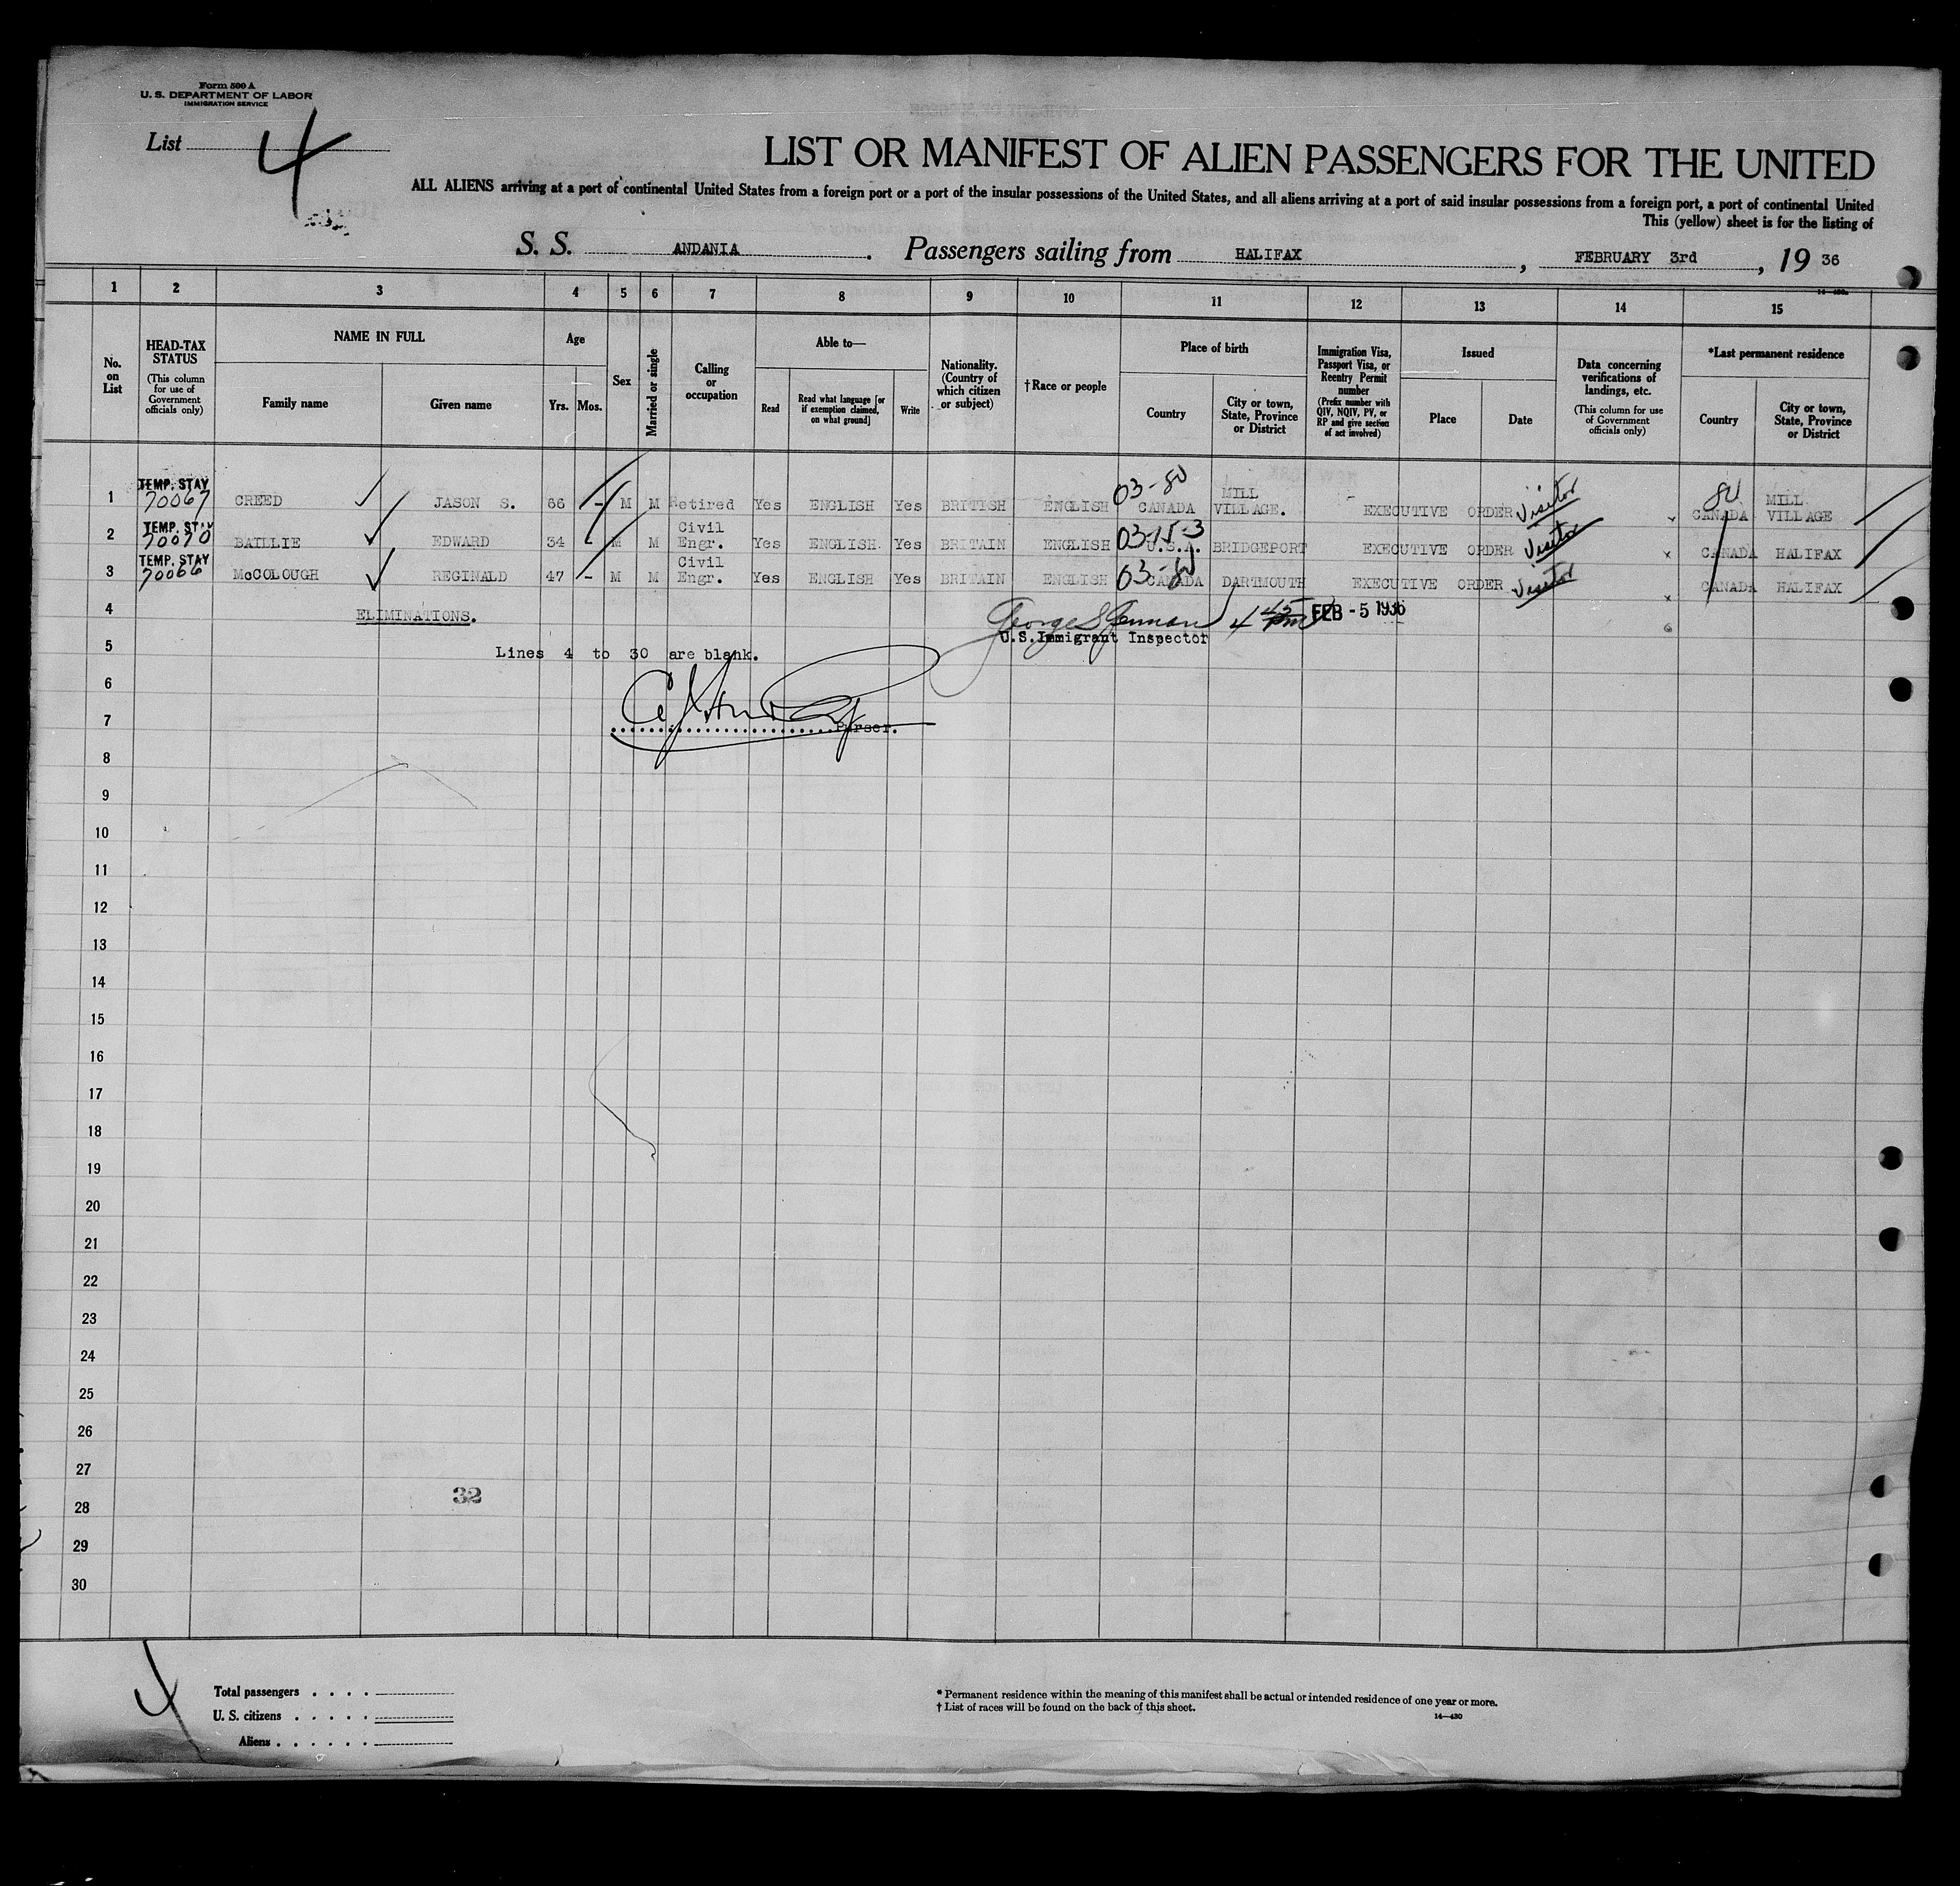 Form 500 A
U. S. DEPARTMENT OF LABOR
IMMIGRATION SERVICE
List 4
LIST OR MANIFEST OF ALIEN PASSENGERS FOR THE UNITED
ALL ALIENS arriving at a port of continental United States from a foreign port or a port of the insular possessions of the United States, and all aliens arriving at a port of said insular possessions from a foreign port, a port of continental United
This (yellow) sheet is for the listing of
S. S. ANDANIA. Passengers sailing from HALIFAX, FEBRUARY 3rd, 19 36
1 2 3 4 5 6 7 8 9 10 11 12 13 14 15
No. on List
HEAD-TAX STATUS (This column for use of Government officials only)
NAME IN FULL
Family name
Given name
Age
Yrs. Mos.
Sex
Married or single
Calling or occupation
Able to—
Read
Read what language [or if exemption claimed, on what ground]
Write
Nationality. (Country of which citizen or subject)
†Race or people
Place of birth
Country
City or town, State, Province or District
Immigration Visa, Passport Visa, or Reentry Permit number (Prefix number with QIV, NQIV, PV, or RP and give section of act involved)
Issued
Place
Date
Data concerning verifications of landings, etc. (This column for use of Government officials only)
*Last permanent residence
Country
City or town, State, Province or District
1 TEMP. STAY 70067 CREED JASON S. 66 - M M Retired Yes ENGLISH Yes BRITISH ENGLISH 03-80 CANADA MILL VILLAGE. - EXECUTIVE ORDER Visitor 80 CANADA MILL VILLAGE
2 TEMP. STAY 70070 BAILLIE EDWARD 34 - M M Civil Engr. Yes ENGLISH. Yes BRITAIN ENGLISH 03-15-3 U.S.A. BRIDGEPORT EXECUTIVE ORDER Visitor x CANADA HALIFAX
3 TEMP. STAY 70066 McCOLOUGH REGINALD 47 - M M Civil Engr. Yes ENGLISH Yes BRITAIN ENGLISH 03-80 CANADA DARTMOUTH EXECUTIVE ORDER Visitor x CANADA HALIFAX
4 ELIMINATIONS. FEB - 5 1936
U.S.Immigrant Inspector
5 Lines 4 to 30 are blank.
6
7 Purser.
8
9
10
11
12
13
14
15
16
17
18
19
20
21
22
23
24
25
26
27
28 32
29
30
4
Total passengers . . . .
U. S. citizens . . . . .
Aliens . . . . . .
* Permanent residence within the meaning of this manifest shall be actual or intended residence of one year or more.
† List of races will be found on the back of this sheet.
14—430